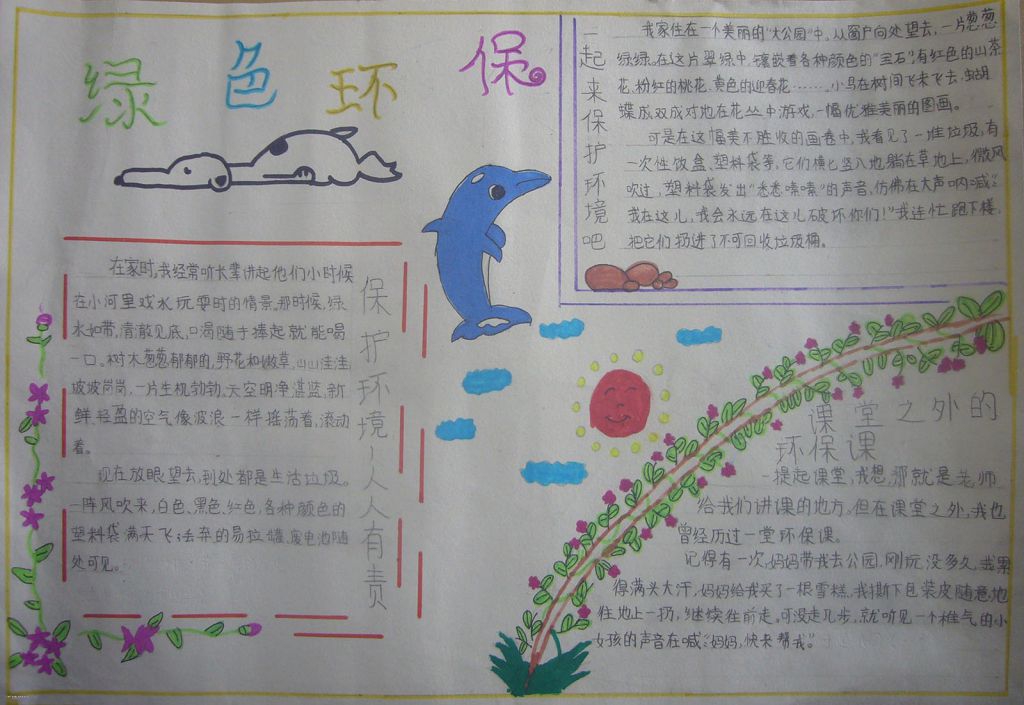 绿色环保
一起来保护环境吧
我家住在一个美丽的"大公园"中。从窗户向处望去,一片葱葱
绿绿。在这片翠绿中,镶嵌着各种颜色的"宝石",有红色的山茶
花、粉红的桃花、黄色的迎春花……小鸟在树间飞来飞去,蝴
蝶成双成对地在花丛中游戏,一幅优雅美丽的图画。
可是在这幅美不胜收的画卷中,我看见了一堆垃圾,有
一次性饭盒、塑料袋等,它们横七竖八地躺在草地上,微风
吹过,塑料袋发出"悉悉嗦嗦"的声音,仿佛在大声呐喊:"
我在这儿,我会永远在这儿破坏你们!"我连忙跑下楼,
把它们扔进了不可回收垃圾桶。
保护环境人人有责
在家时,我经常听长辈讲起他们小时候
在小河里戏水玩耍时的情景。那时候,绿
水如带,清澈见底,口渴随手捧起就能喝
一口。树木葱葱郁郁的,野花和嫩草,山山洼洼
坡坡岗岗,一片生机勃勃,天空明净湛蓝,新
鲜、轻盈的空气像波浪一样摇荡着,滚动
着。
现在放眼望去,到处都是生活垃圾。
一阵风吹来,白色、黑色、红色,各种颜色的
塑料袋满天飞;丢弃的易拉罐、废电池随
处可见。
课堂之外的
环保课
一提起课堂,我想,那就是老师
给我们讲课的地方。但在课堂之外,我也
曾经历过一堂环保课。
记得有一次,妈妈带我去公园,刚玩没多久,我累
得满头大汗,妈妈给我买了一根雪糕,我撕下包装皮随意地
往地上一扔,继续往前走。可没走几步,就听见一个稚气的小
女孩的声音在喊:"妈妈,快来帮我"